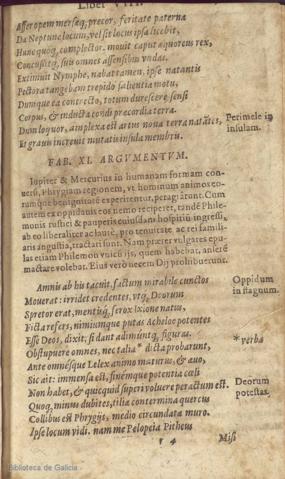 Liber VIII.
Affer opem mersæq, precor, feritate paterna
Da Neptune locum, vel sit locus ipsa licebit,
Hunc quoq, complectar. mouit caput æquoreus rex,
Concussitq, suis omnes assensibus vndas.
Extimuit Nymphe, nabat tamen. ipse natantis
Pectora tangebam trepido salientia motu,
Dumque ea contrecto, totum durescere sensi
Corpus, & inducta condi præcordia terra.
Dum loquor, amplexa est artus noua terra natātes,
Et grauis increuit mutatis insula membris.
Perimele in
insulam.
FAB. XI. ARGVMENTVM.
Iupiter & Mercurius in humanam formam con-
uersi, Phrygiam regionem, vt hominum animos eo-
rumque benignitatē experirentur, peragrārunt. Cum
autem ex oppidanis eos nemo reciperet, tandē Phile-
monis rustici & pauperis cuiusdam hospitiū ingressi,
ab eo liberaliter ac lautè, pro tenuitate ac rei famili-
aris angustia, tractati sunt. Nam præter vulgares epu-
las etiam Philemon vnicū ijs, quem habebat, anserē
mactare volebat. Eius verò necem Dij prohibuerunt.
Amnis ab his tacuit. factum mirabile cunctos
Mouerat: irridet credentes, vtq, Deorum
Spretor erat, mentisq, ferox Ixione natus,
Ficta refers, nimiumque putas Acheloe potentes
Esse Deos, dixit: si dant adimuntq, figuras.
Obstupuere omnes, nec talia* dicta probarunt,
Ante omnesque Lelex animo maturus, & æuo,
Sic ait: immensa est, finemque potentia cœli
Non habet, & quicquid superi voluere peractum est.
Quoq, minus dubites, tiliæ contermina quercus
Collibus est Phrygijs, medio circundata muro.
Ipse locum vidi. nam me Pelopeia Pitheus
Oppidum
in stagnum.
*verba
Deorum
potestas.
Misi
Biblioteca de Galicia